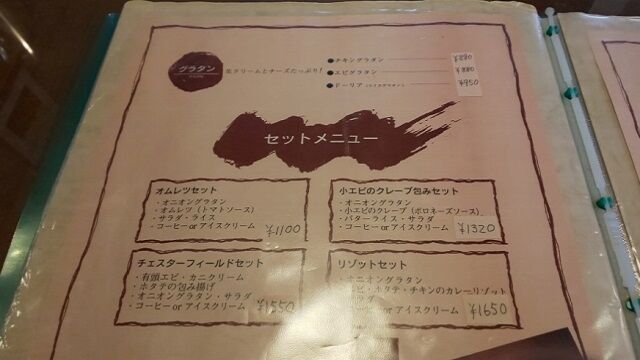 グラタン
生クリームとチーズたっぷり!
●チキングラタン ¥880
●エビグラタン ¥880
●ドーリア ¥950
セットメニュー
オムレツセット
・オニオングラタン
・オムレツ(トマトソース)
・サラダ・ライス
・コーヒーorアイスクリーム ¥1100
小エビのクレープ包みセット
・オニオングラタン
・小エビのクレープ(ボロネーズソース)
・バターライス・サラダ
・コーヒーorアイスクリーム ¥1320
チェスターフィールドセット
・有頭エビ・カニクリーム
・ホタテの包み揚げ
・オニオングラタン・サラダ
・コーヒーorアイスクリーム ¥1550
リゾットセット
オニオングラタン
エビ・ホタテ・チキンのカレーリゾット
サラダ
コーヒーorアイスクリーム ¥1650